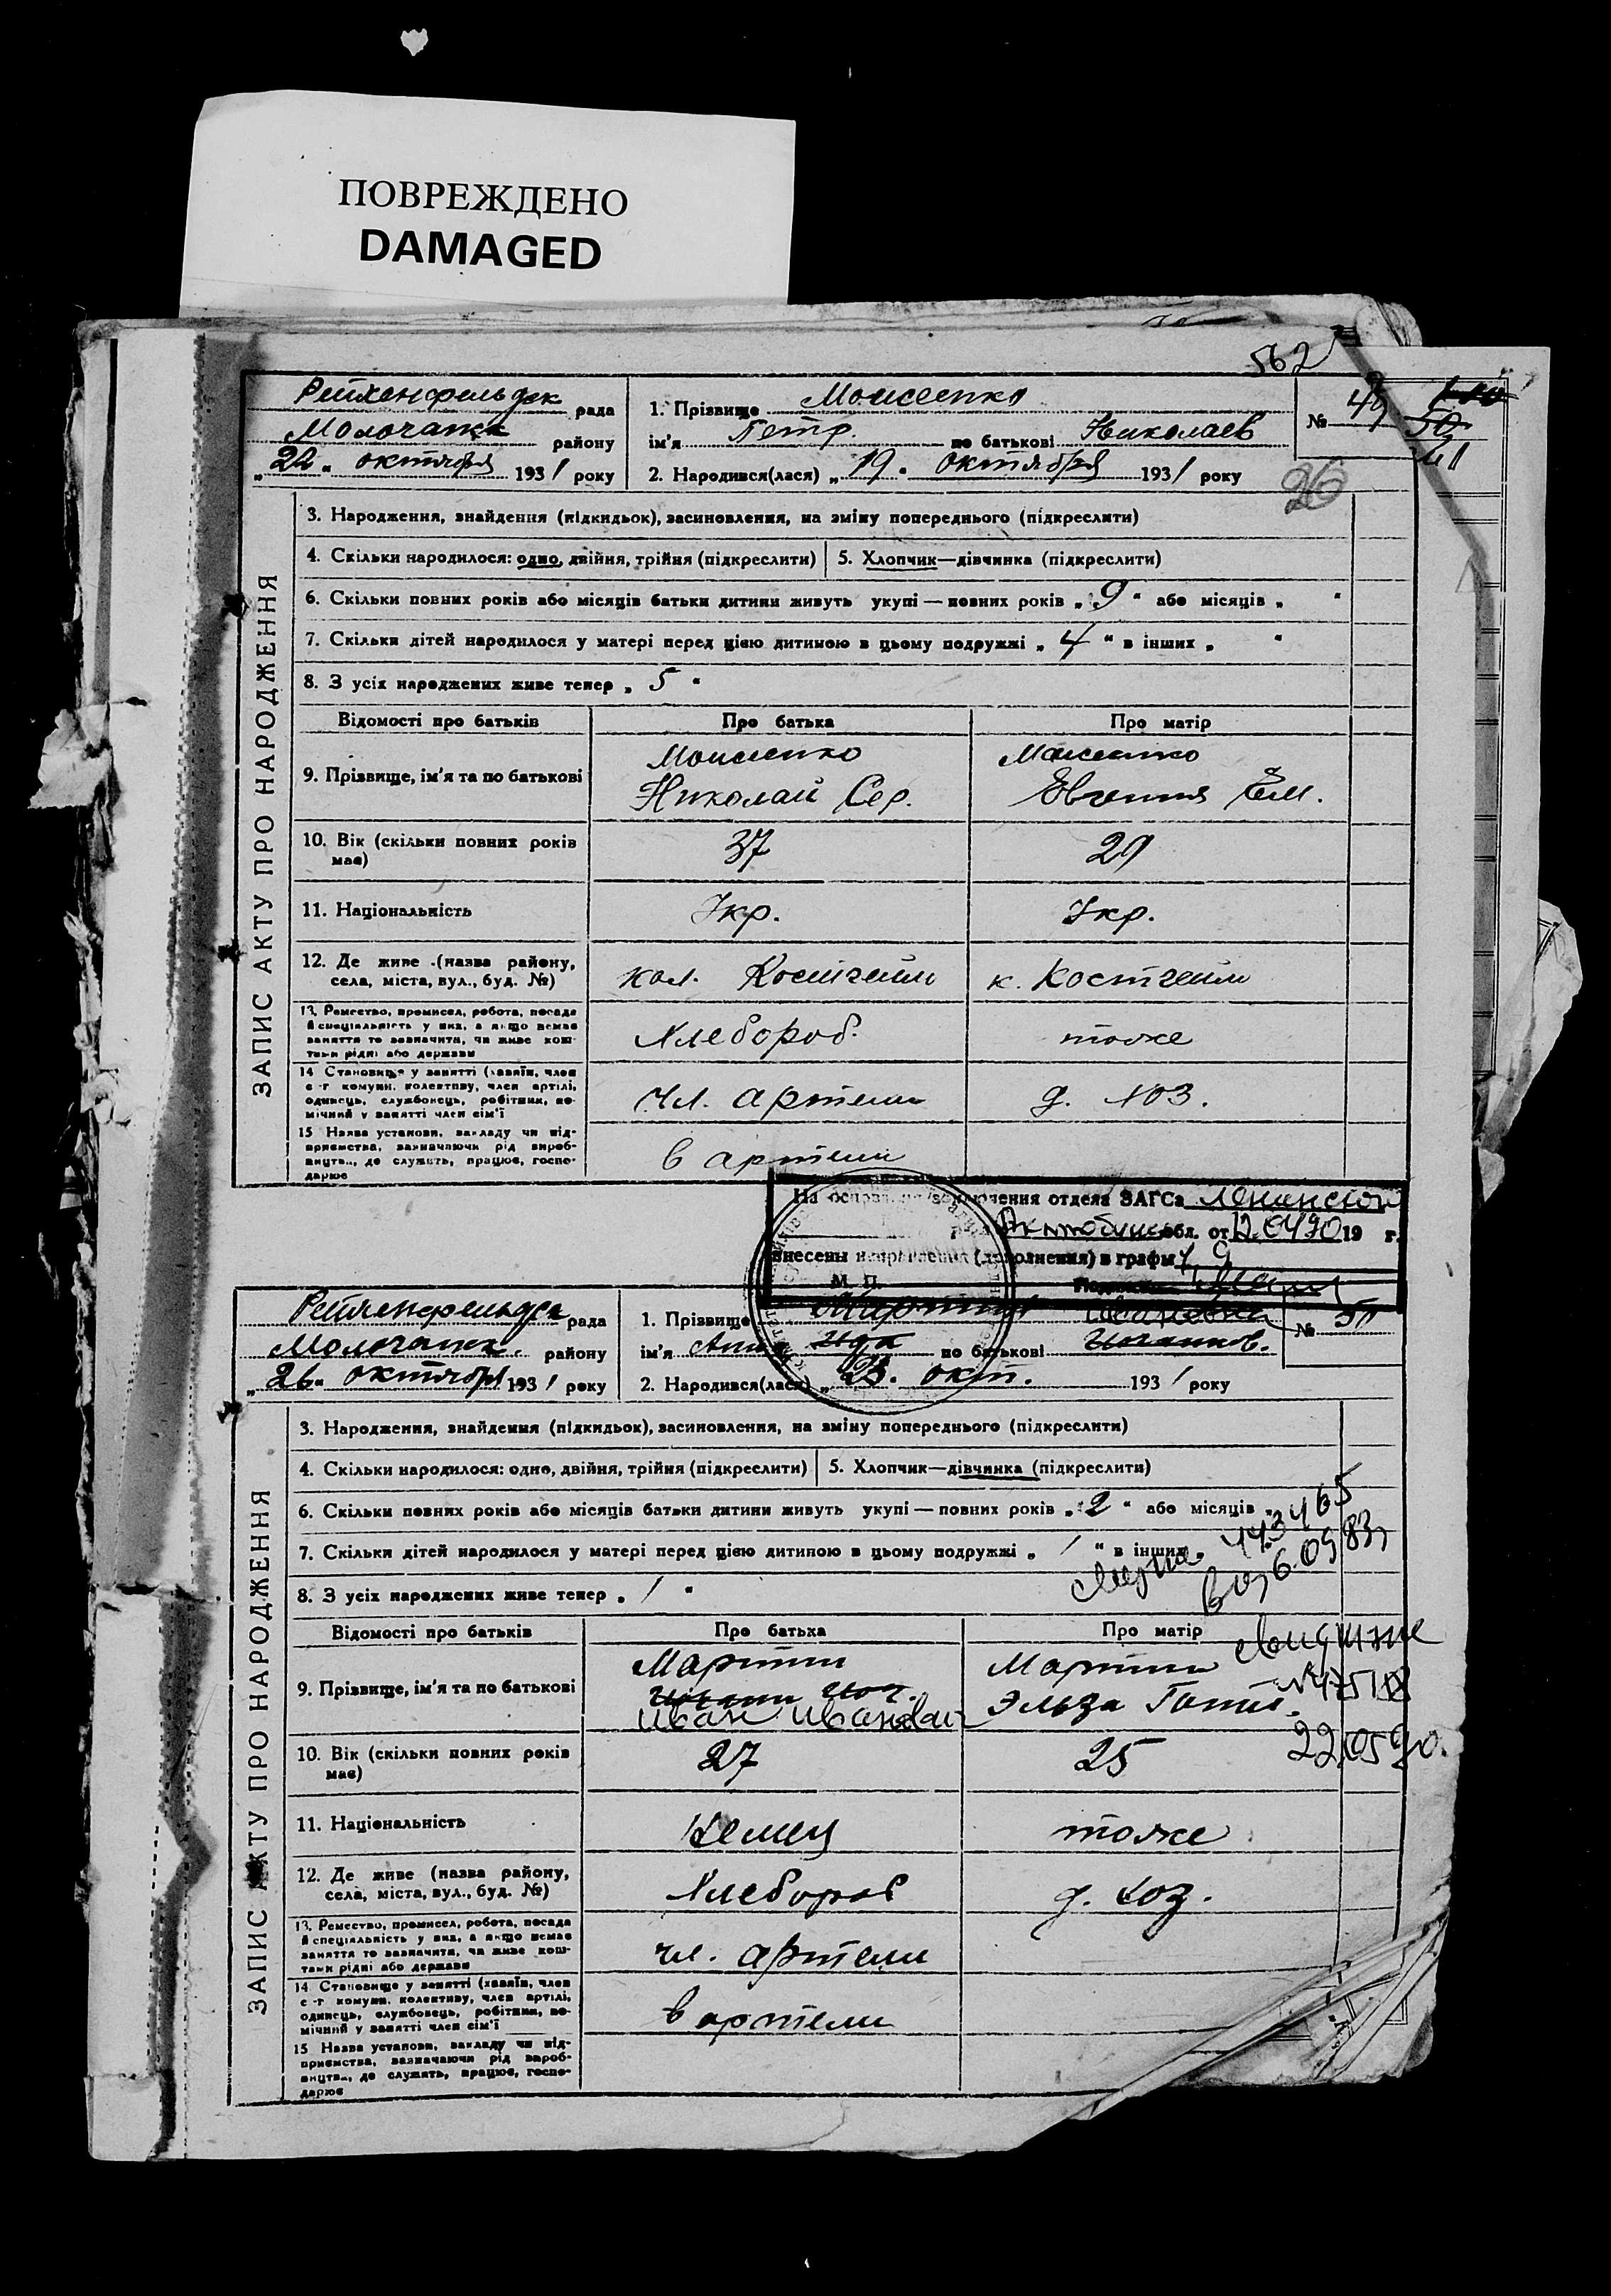 ПОВРЕЖДЕНО
DAMAGED
562
Рейхенфельдск рада
Молочанск району
„22“ октября 1931 року
1. Прізвище Моисеенко
ім'я Петр по батькові Николаев
2. Народився(лася) „19. октября 1931 року
№ 49
50
26
ЗАПИС АКТУ ПРО НАРОДЖЕННЯ
3. Народження, знайдення (підкидьок), засиновлення, на зміну попереднього (підкреслити)
4. Скільки народилося: одно, двійня, трійня (підкреслити) 5. Хлопчик—дівчинка (підкреслити)
6. Скільки повних років або місяців батьки дитини живуть укупі — повних років „9“ або місяців „ “
7. Скільки дітей народилося у матері перед цією дитиною в цьому подружжі „4“ в інших „ “
8. З усіх народжених живе тепер „5“
Відомості про батьків Про батька Про матір
9. Прізвище, ім'я та по батькові Моисеенко Николай Сер. Моисеенко Евгения Ем.
10. Вік (скільки повних років має) 37 29
11. Національність Укр. Укр.
12. Де живе (назва району, села, міста, вул., буд. №) кол. Костгейм к. Костгейм
13. Ремество, промисел, робота, посада й спеціяльність у них, а якщо немає заняття то зазначити, чи живе коштами рідні або держави Хлебороб. тоже
14 Становище у занятті (хазяїн, член с-г комуни, колективу, член артілі, одинець, службовець, робітник, помічний у занятті член сім'ї чл. артели д. хоз.
15 Назва установи, закладу чи підприємства, зазначаючи рід виробництва, де служить, працює, господарює в артели
На основании заключения отдела ЗАГСа Ленинского
Актюбинс обл. от 12.04.90 19 г.
внесены исправления (дополнения) в графы 1, 9
М. П. Подпись
Рейхенфельдск рада
Молочанск. району
„26“ октября 1931 року
1. Прізвище Мартин Ивановна
ім'я Анна Ида по батькові Иоганнов.
2. Народився(лася) „23. окт. 1931 року
№ 50
ЗАПИС АКТУ ПРО НАРОДЖЕННЯ
3. Народження, знайдення (підкидьок), засиновлення, на зміну попереднього (підкреслити)
4. Скільки народилося: одно, двійня, трійня (підкреслити) 5. Хлопчик—дівчинка (підкреслити)
6. Скільки повних років або місяців батьки дитини живуть укупі — повних років „2“ або місяців „
7. Скільки дітей народилося у матері перед цією дитиною в цьому подружжі „1“ в інших
8. З усіх народжених живе тепер „1“
443465
6.09.83г
Відомості про батьків Про батька Про матір
9. Прізвище, ім'я та по батькові Мартин Иоганн Иог. Иван Иванович Мартин Эльза Готл.
22.05.90.
10. Вік (скільки повних років має) 27 25
11. Національність Немец тоже
12. Де живе (назва району, села, міста, вул., буд. №) Хлебороб д. хоз.
13. Ремество, промисел, робота, посада й спеціяльність у них, а якщо немає заняття то зазначити, чи живе коштами рідні або держави чл. артели
14 Становище у занятті (хазяїн, член с-г комуни, колективу, член артілі, одинець, службовець, робітник, помічний у занятті член сім'ї в артели
15 Назва установи, закладу чи підприємства, зазначаючи рід виробництва, де служить, працює, господарює